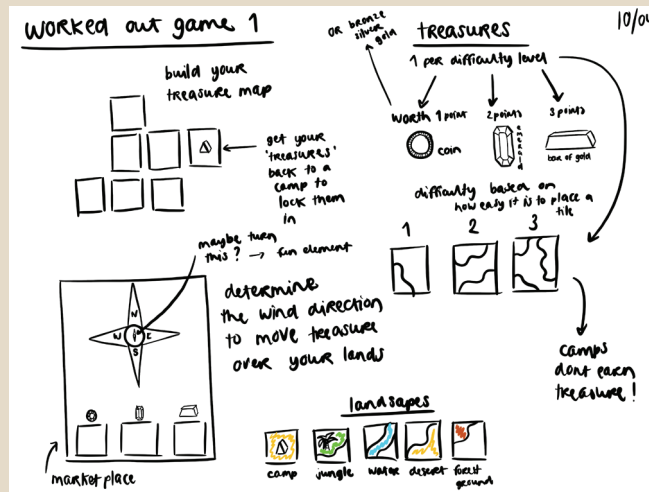 WORKED OUT GAME 1
build your
treasure map
get your
'treasures'
back to a
camp to
lock them
in
maybe turn
this? → fun element
N
W E
S
determine
the wind direction
to move treasure
over your lands
marketplace
OR bronze
silver
gold
treasures
10/04
1 per difficulty level
worth 1 point
2 points
3 points
coin
emerald
bar of gold
difficulty based on
how easy it is to place a
tile
1 2 3
camps
dont earn
treasure!
landsapes
camp
jungle
water
desert
forest
ground